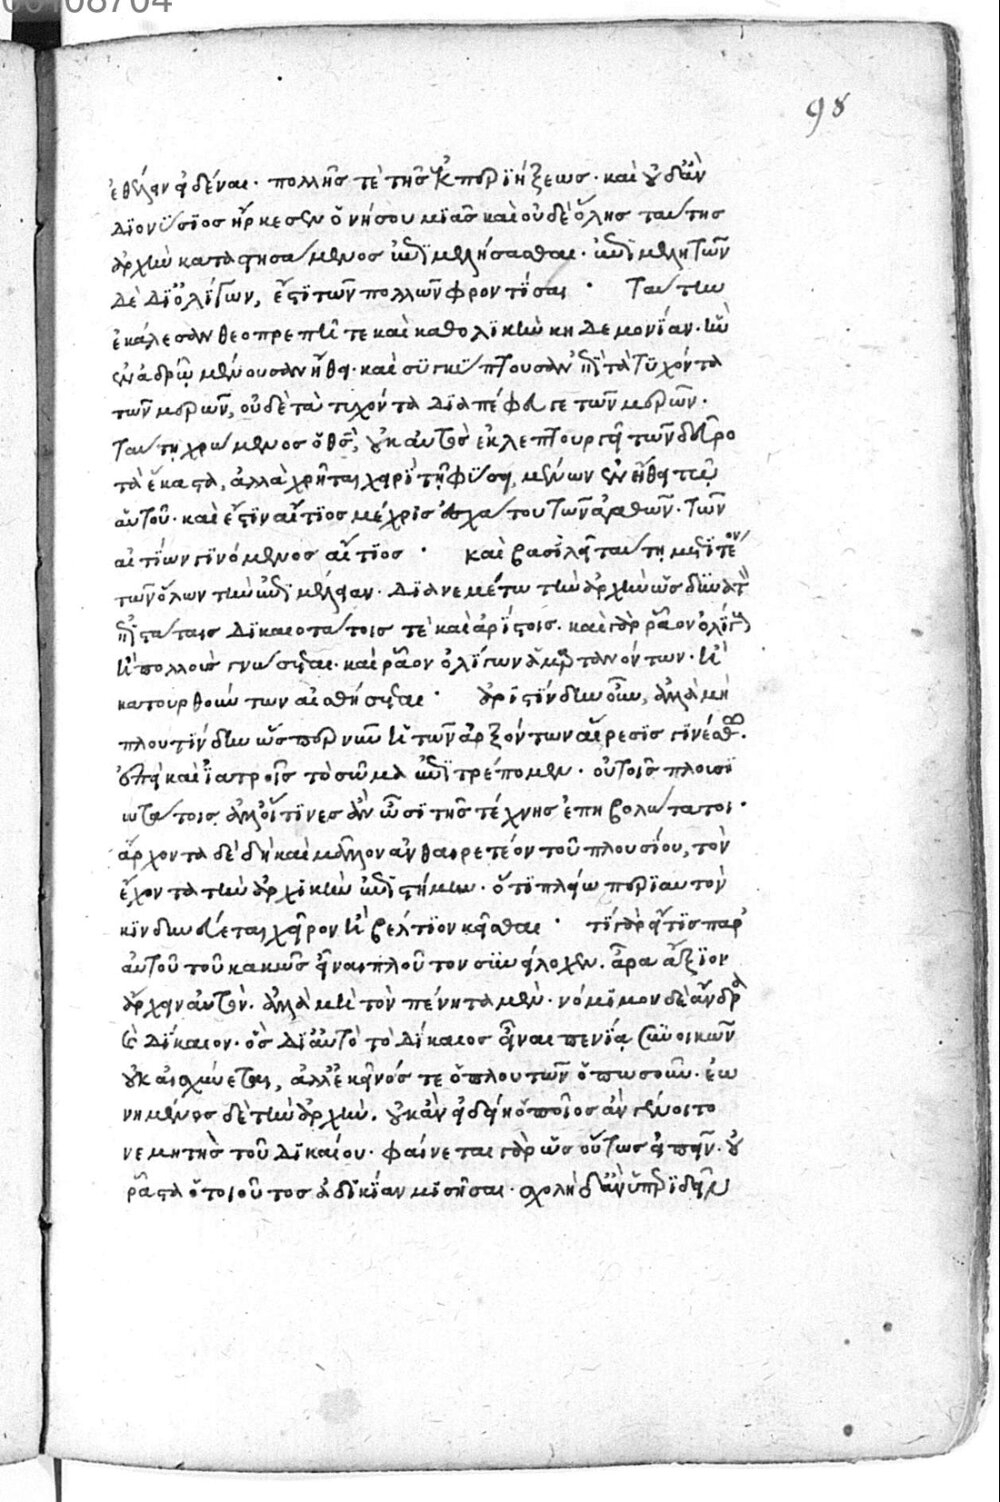 98
ἐθέλειν εἰδέναι· πολλῆς τὲ τῆς ἐκπεριήξεως· καὶ οὐδ' ἂν
Διονύσιος ἤρκεσεν ὁ νήσου μιᾶς καὶ οὐδὲ ὅλης ταύτης
ἀρχὴν κατακτησάμενος ἐπιμελήσασθαι· ἐπιμελητῶν
δὲ δι' ὀλίγων, ἔστι τῶν πολλῶν φροντίσαι· Ταύτην
ἐκάλεσαν θεοπρεπῆ τε καὶ καθολικὴν κηδεμονίαν· ἣν
ἐναδρῷ μένουσαν ἤθει· καὶ συγκύπτουσαν ἐπὶ τὰ τυχόντα
τῶν μερῶν, οὐδὲ τὰ τυχόντα διαπέφευγε τῶν μερῶν·
Ταύτῃ χρώμενος ὁ θεὸς, οὐκ αὐτὸς ἐκλεπτουργεῖ τῶν δεῦρο
τὰ ἕκαστα, ἀλλὰ χρῆται χειρὶ τῇ φύσει, μένων ἐν ἤθει τῷ
αὐτοῦ· καὶ ἔστιν αἴτιος μέχρις ἔσχατου τῶν ἀγαθῶν· τῶν
αἰτίων γινόμενος αἴτιος· καὶ βασιλεῖ ταύτῃ μετιτέον
τῶν ὅλων τὴν ἐπιμέλειαν· Διανεμέτω τὴν ἀρχὴν ὡς δυνατὸν
ἐπιστάταις δικαιοτάτοις τὲ καὶ ἀρίστοις· καὶ γὰρ ῥᾷον ὀλίγους
ἢ πολλοὺς γνώσεσθαι· καὶ ῥᾷον ὀλίγων ἁμαρτανόντων· ἢ
κατορθούντων αἰσθήσεσθαι· ἀριστίνδην οὖν, ἀλλὰ μὴ
πλουτίνδην ὥσπερ νῦν ἡ τῶν ἀρξόντων αἵρεσις γινέσθω·
ἐπεὶ καὶ ἰατροῖς τὸ σῶμα ἐπιτρέπομεν· οὐ τοῖς πλουσι
ωτάτοις ἀλλ' οἵτινες ἂν ὦσι τῆς τέχνης ἐπηβολώτατοι·
ἄρχοντα δὲ δὴ καὶ μᾶλλον ἀνθαιρετέον τοῦ πλουσίου, τὸν
ἔχοντα τὴν ἀρχικὴν ἐπιστήμην· ὅτι πλείω περὶ αὐτὸν
κινδυνεύεται χεῖρον ἢ βέλτιον κεῖσθαι· τί γὰρ εἴ τις παρ'
αὐτοῦ τοῦ κακῶς εἶναι πλοῦτον συνείλοχεν. ἆρα ἄξιον
ἄρχειν αὐτὸν. ἀλλὰ μὴ τὸν πένητα μὲν· νόμιμον δὲ ἄνδρα
καὶ δίκαιον· ὃς δι' αὐτὸ τὸ δίκαιος εἶναι πενίᾳ συνοικῶν
οὐκ αἰσχύνεται, ἀλλ' ἐκεῖνός τε ὁ πλουτῶν ὁπωσοῦν· ἐω
νημένος δὲ τὴν ἀρχὴν. οὐκ ἂν εἰδείη ὁποῖος ἂν γένοιτο
νεμητὴς τοῦ δικαίου· φαίνεται γὰρ ὡς οὕτως εἰπεῖν· οὐ
ῥᾷστα ὁ τοιοῦτος ἀδικίαν μισῆσαι· σχολῇ δ' ἂν ὑπεριδεῖν